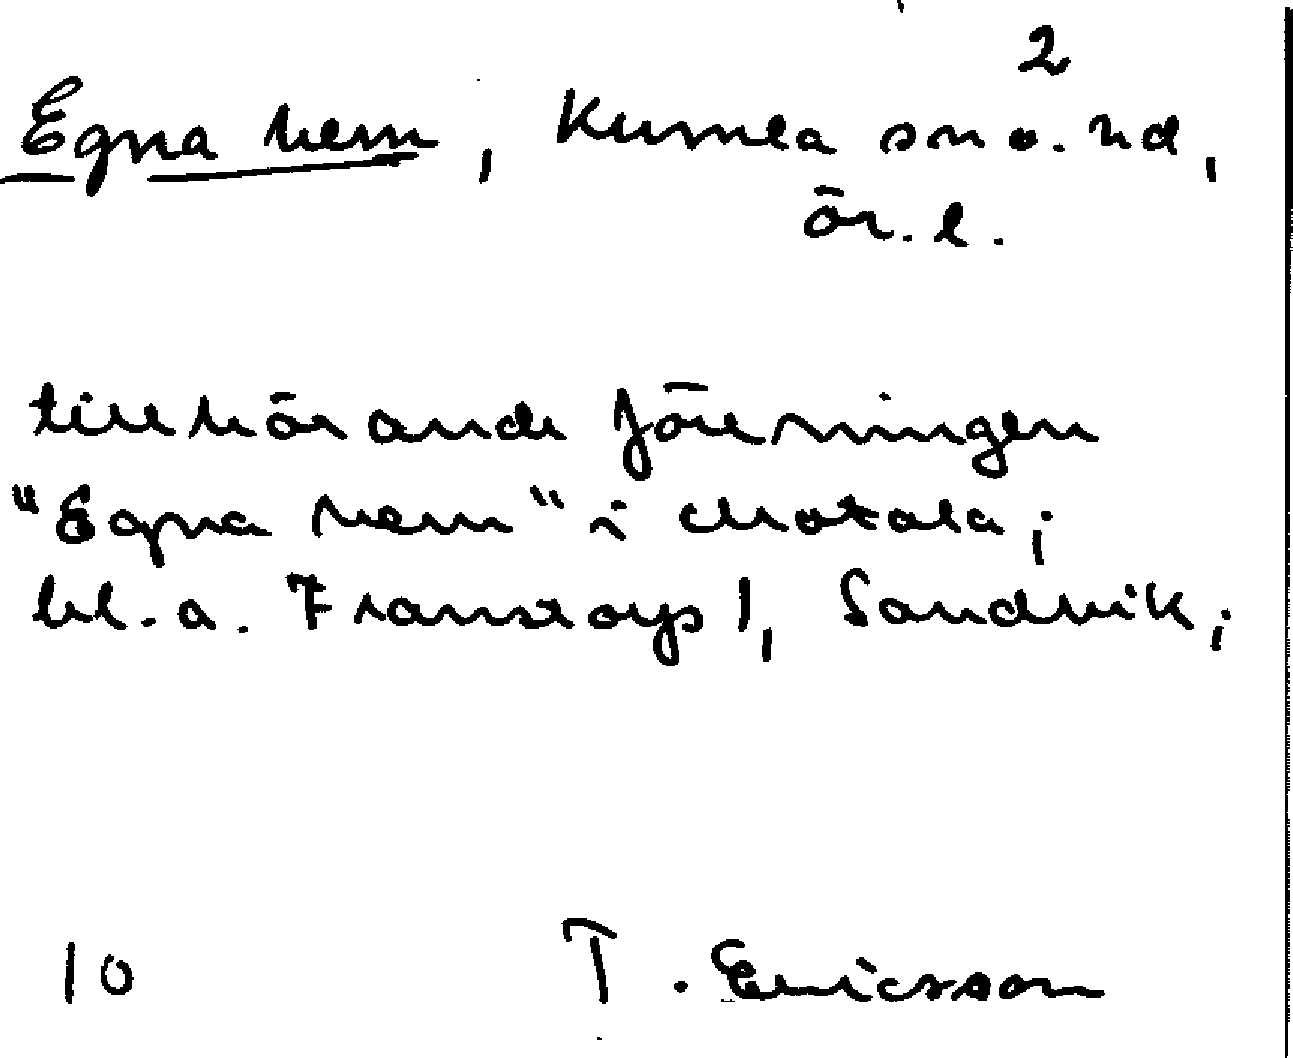 2
Egna hem, Kumla sn o. hd,
ör. l.
tillhörande föreningen
"Egna hem" i Motala;
bl. a. Franstorp 1, Sandvik;
10 T. Ericsson